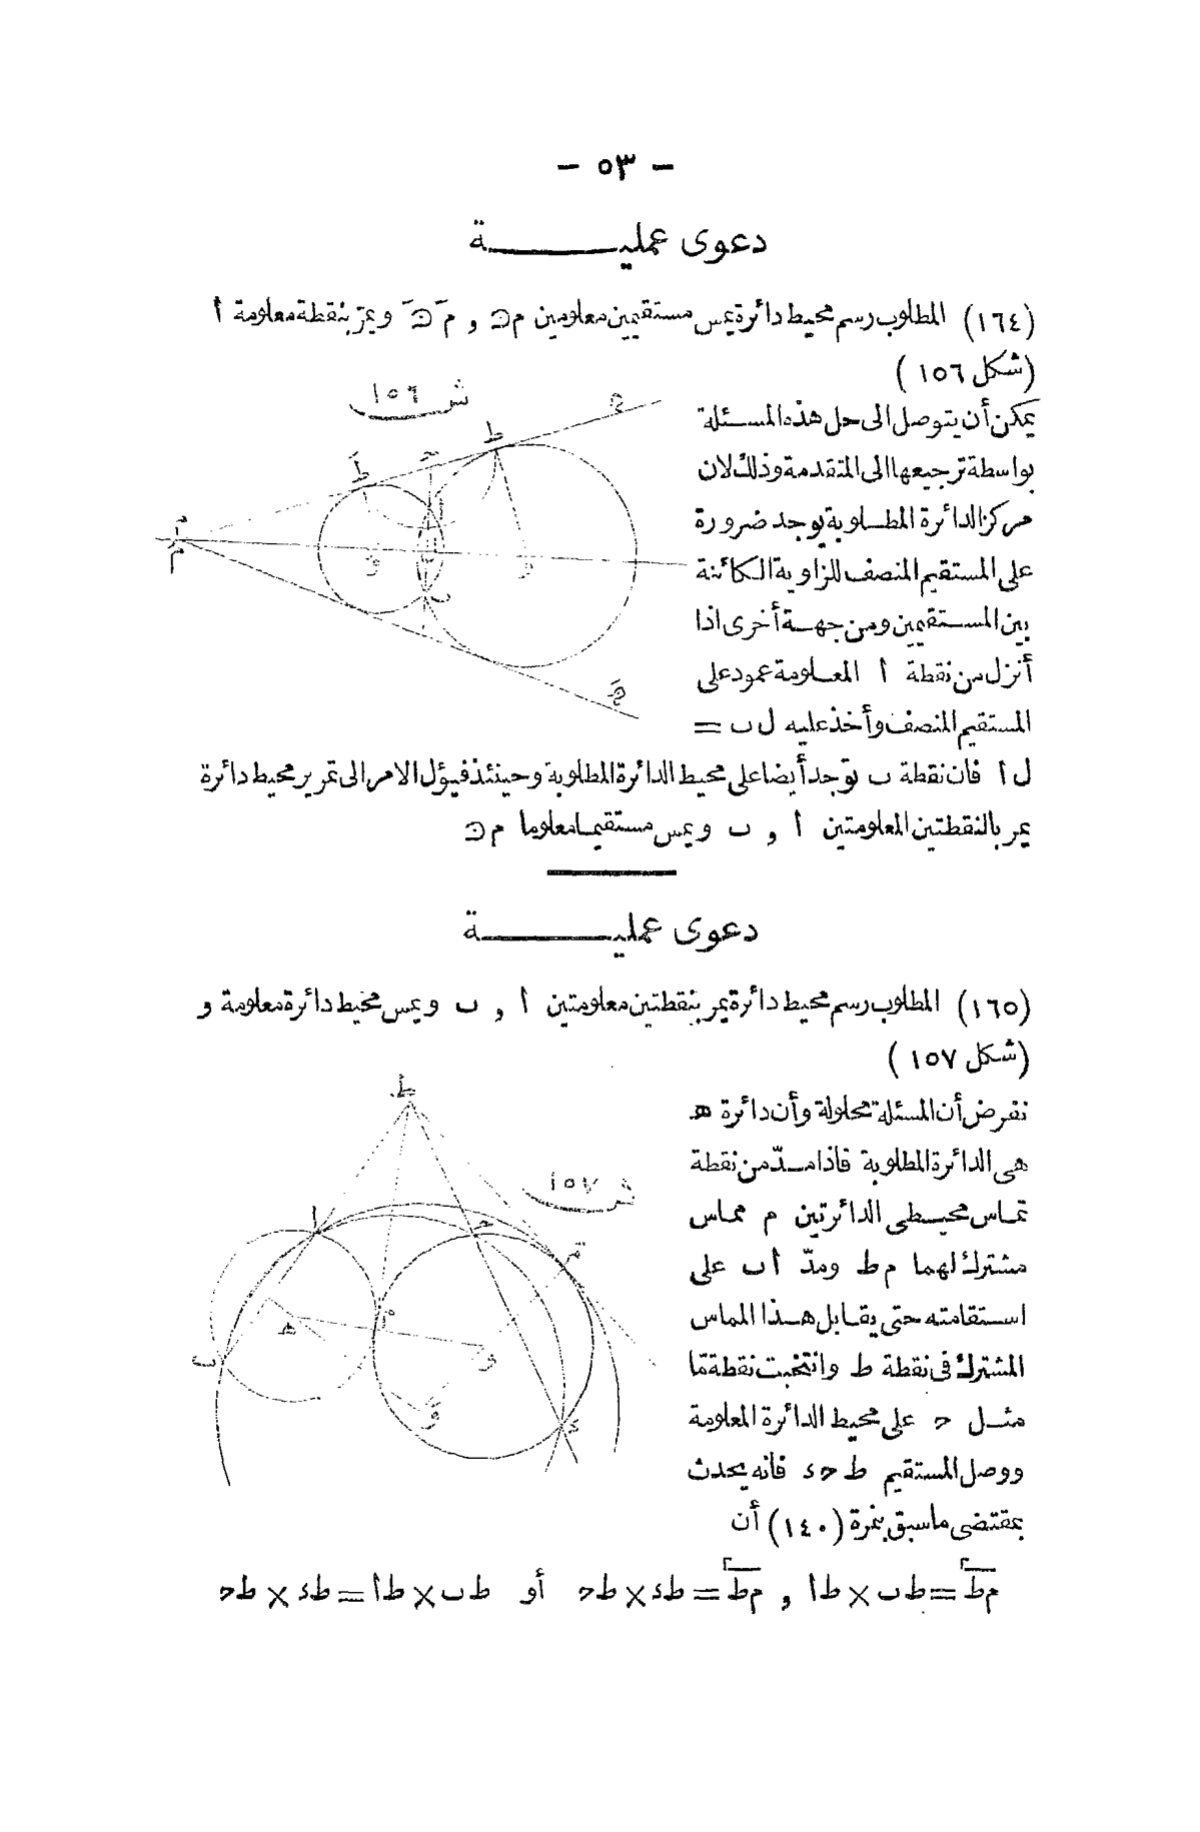 - ٥٣ -
دعوى عملية
(١٦٤) المطلوب رسم محيط دائرة يمس مستقيمين معلومين م ح , مَ حَ ويمرّ بنقطة معلومة أ
(شكل ١٥٦)
ش ١٥٦
يمكن أن يتوصل الى حل هذه المسئلة
بواسطة ترجيعها الى المتقدمة وذلك لان
مركز الدائرة المطلوبة يوجد ضرورة
على المستقيم المنصف للزاوية الكائنة
بين المستقيمين ومن جهة أخرى اذا
أنزل من نقطة أ المعلومة عمود على
المستقيم المنصف وأخذ عليه ل ب =
ل أ فان نقطة ب توجد أيضا على محيط الدائرة المطلوبة وحينئذ فيؤل الامر الى تمرير محيط دائرة
يمر بالنقطتين المعلومتين أ , ب ويمس مستقيما معلوما م ح
دعوى عملية
(١٦٥) المطلوب رسم محيط دائرة يمر بنقطتين معلومتين أ , ب ويمس محيط دائرة معلومة و
(شكل ١٥٧)
ش ١٥٧
نفرض أن المسئلة محلولة وأن دائرة ه
هى الدائرة المطلوبة فاذا مدّ من نقطة
تماس محيطى الدائرتين م مماس
مشترك لهما م ط ومدّ أ ب على
استقامته حتى يقابل هذا المماس
المشترك فى نقطة ط وانتخبت نقطة مّا
مثل ح على محيط الدائرة المعلومة
ووصل المستقيم ط ح د فانه يحدث
بمقتضى ما سبق بنمرة (١٤٠) أن
م ط٢ = ط ب × ط أ , م ط٢ = ط د × ط ح أو ط ب × ط أ = ط د × ط ح